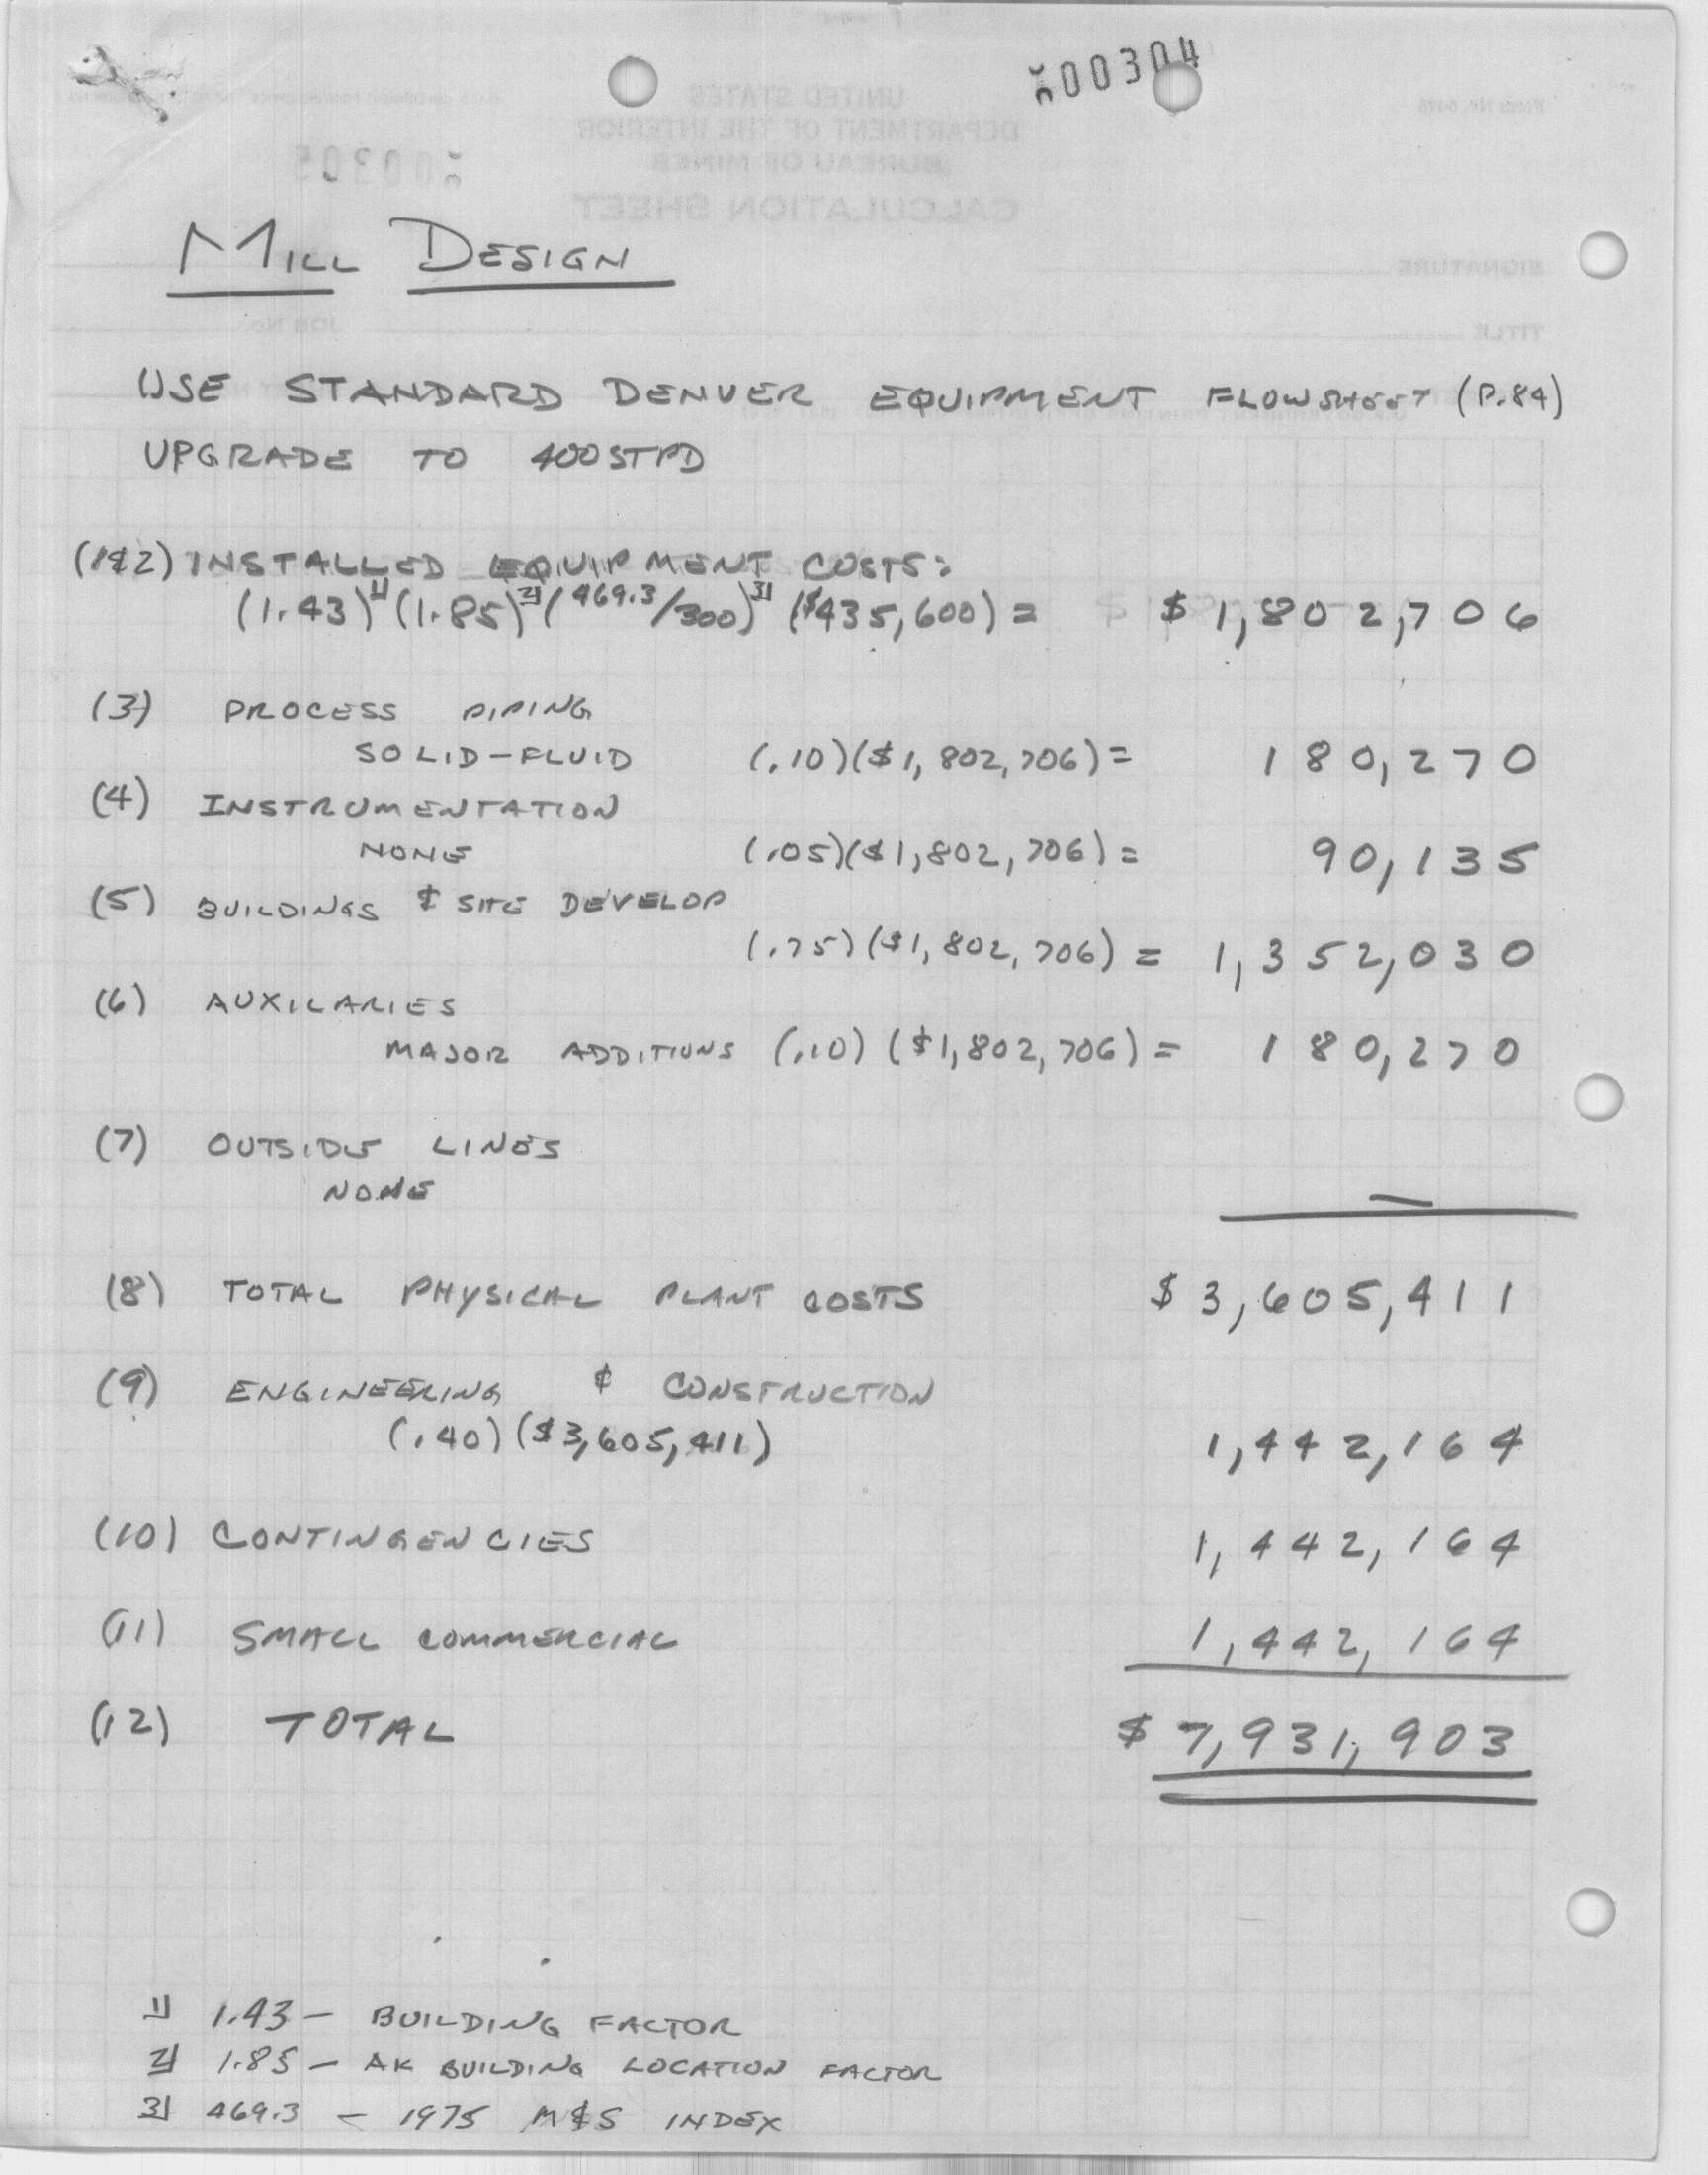 00304
UNITED STATES
DEPARTMENT OF THE INTERIOR
BUREAU OF MINES
00305
CALCULATION SHEET
SIGNATURE
JOB No.
TITLE
MILL DESIGN
USE STANDARD DENVER EQUIPMENT FLOWSHEET (P.84)
UPGRADE TO 400STPD
(1&2) INSTALLED EQUIPMENT COSTS:
(1.43)1] (1.85)2] (469.3/300)3] ($435,600) = $1,802,706
(3) PROCESS PIPING
SOLID-FLUID (.10)($1,802,706) = 180,270
(4) INSTRUMENTATION
NONE (.05)($1,802,706) = 90,135
(5) BUILDINGS & SITE DEVELOP
(.75)($1,802,706) = 1,352,030
(6) AUXILARIES
MAJOR ADDITIONS (.10) ($1,802,706) = 180,270
(7) OUTSIDE LINES
NONE —
(8) TOTAL PHYSICAL PLANT COSTS $3,605,411
(9) ENGINEERING & CONSTRUCTION
(.40)($3,605,411) 1,442,164
(10) CONTINGENCIES 1,442,164
(11) SMALL COMMERCIAL 1,442,164
(12) TOTAL $7,931,903
1] 1.43 – BUILDING FACTOR
2] 1.85 – AK BUILDING LOCATION FACTOR
3] 469.3 – 1975 M&S INDEX